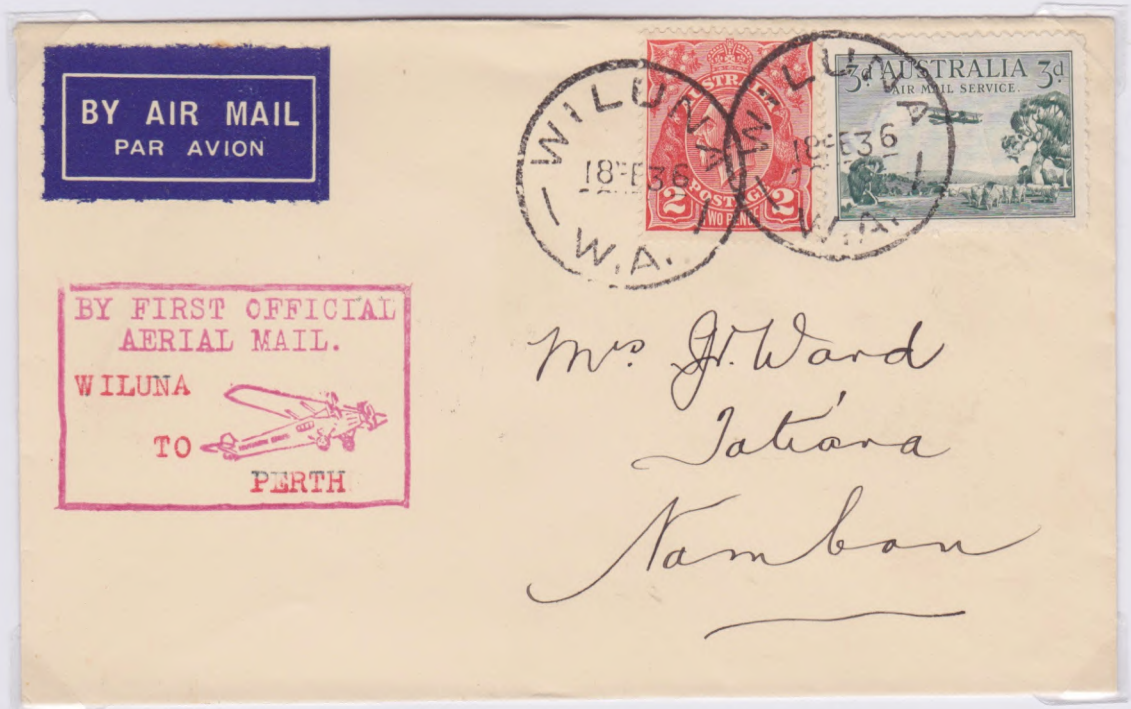 BY AIR MAIL
PAR AVION
WILUNA
18 FE 36
W.A.
WILUNA
18 FE 36
W.A.
AUSTRALIA
2 POSTAGE 2
TWO PENCE
3d AUSTRALIA 3d
AIR MAIL SERVICE.
BY FIRST OFFICIAL
AERIAL MAIL.
WILUNA
TO
PERTH
Mrs Ward
Tatiara